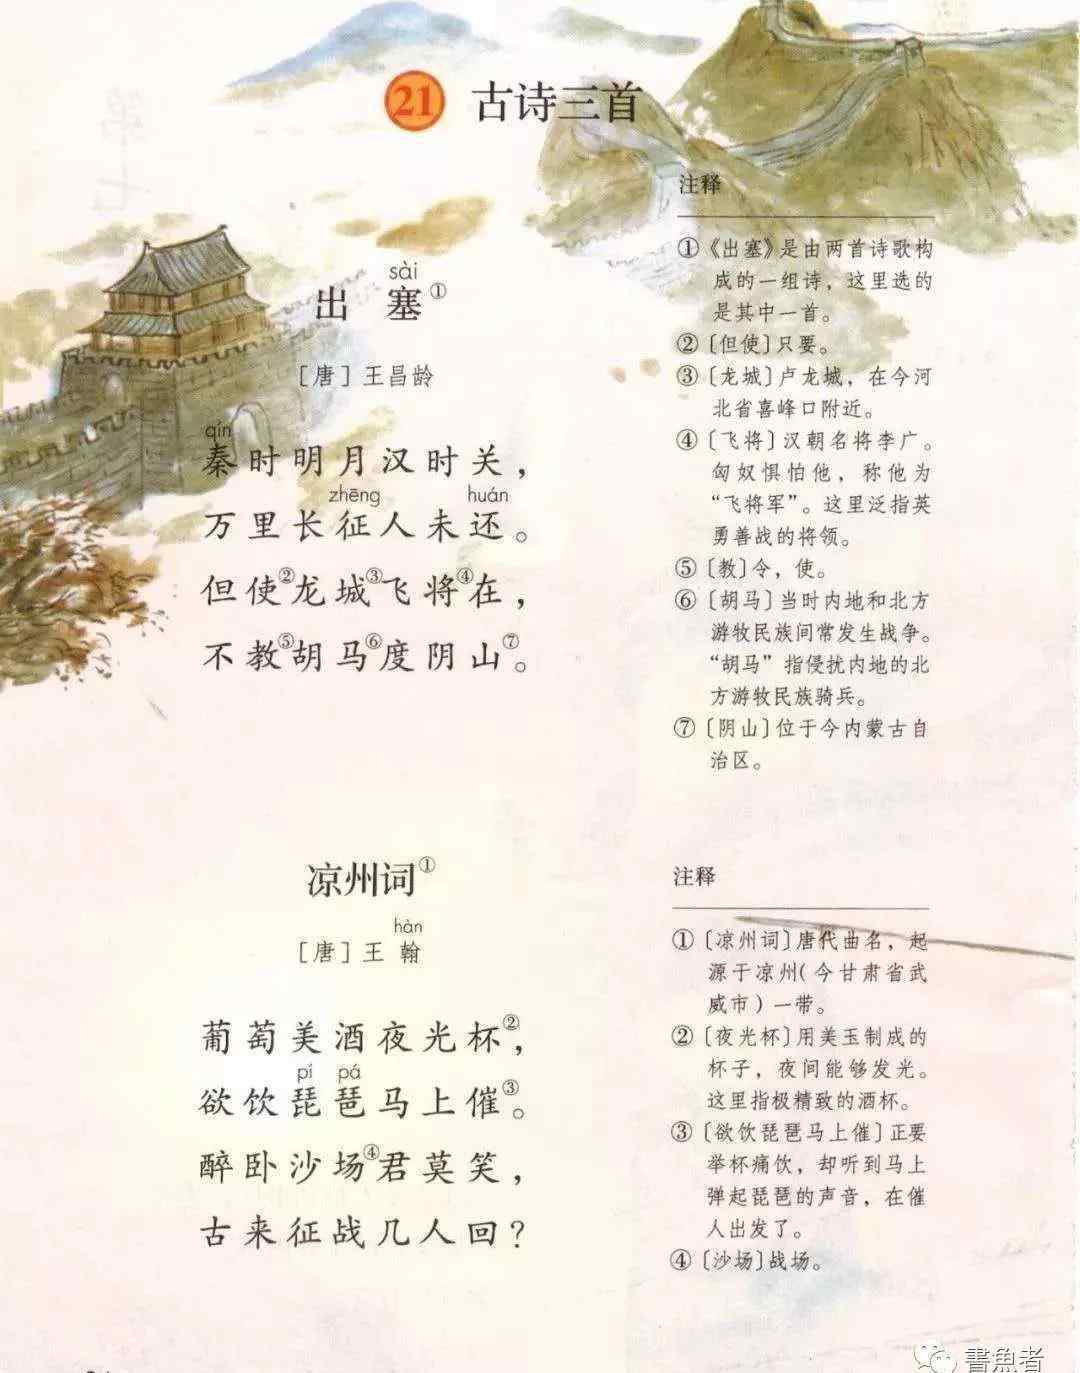 21 古诗三首
sài
出 塞①
［唐］王昌龄
qín
秦时明月汉时关，
zhēng huán
万里长征人未还。
但使②龙城③飞将④在，
不教⑤胡马⑥度阴山⑦。
注释
①《出塞》是由两首诗歌构
成的一组诗，这里选的
是其中一首。
②〔但使〕只要。
③〔龙城〕卢龙城，在今河
北省喜峰口附近。
④〔飞将〕汉朝名将李广。
匈奴惧怕他，称他为
“飞将军”。这里泛指英
勇善战的将领。
⑤〔教〕令，使。
⑥〔胡马〕当时内地和北方
游牧民族间常发生战争。
“胡马”指侵扰内地的北
方游牧民族骑兵。
⑦〔阴山〕位于今内蒙古自
治区。
凉州词①
hàn
［唐］王 翰
葡萄美酒夜光杯②，
pí pá
欲饮琵琶马上催③。
醉卧沙场④君莫笑，
古来征战几人回？
注释
①〔凉州词〕唐代曲名，起
源于凉州（今甘肃省武
威市）一带。
②〔夜光杯〕用美玉制成的
杯子，夜间能够发光。
这里指极精致的酒杯。
③〔欲饮琵琶马上催〕正要
举杯痛饮，却听到马上
弹起琵琶的声音，在催
人出发了。
④〔沙场〕战场。
書魚者